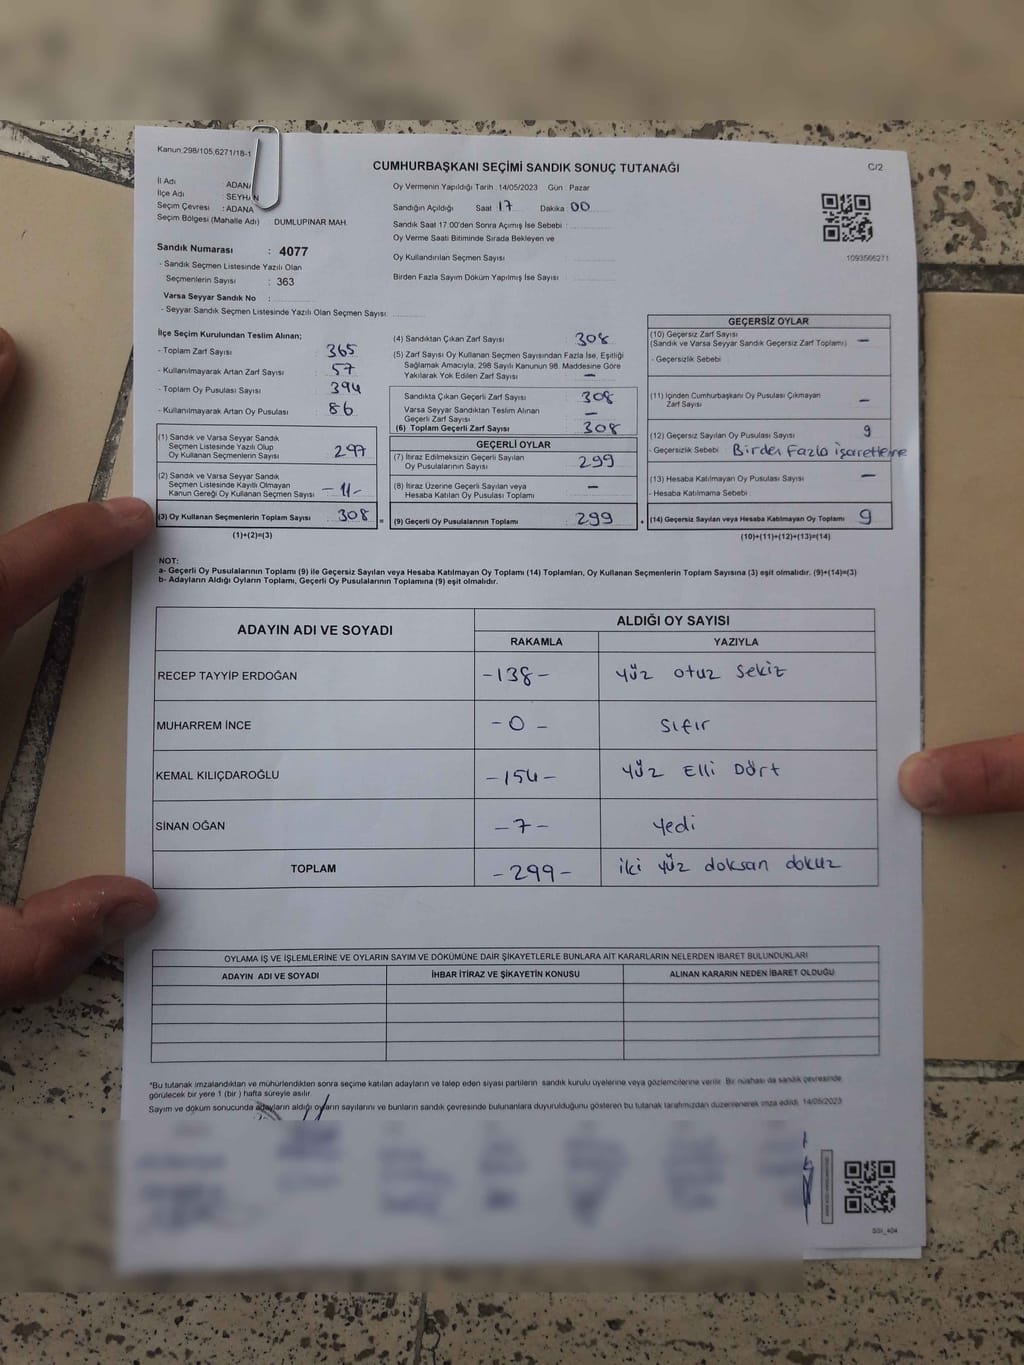 Kanun:298/105,6271/18-1
CUMHURBAŞKANI SEÇİMİ SANDIK SONUÇ TUTANAĞI
C/2
İl Adı : ADANA
İlçe Adı : SEYHAN
Seçim Çevresi : ADANA
Seçim Bölgesi (Mahalle Adı) : DUMLUPINAR MAH.
Oy Vermenin Yapıldığı Tarih : 14/05/2023 Gün : Pazar
Sandığın Açıldığı Saat 17 Dakika 00
Sandık Saat 17:00'den Sonra Açımış İse Sebebi :
Oy Verme Saati Bitiminde Sırada Bekleyen ve
Oy Kullandırılan Seçmen Sayısı
Birden Fazla Sayım Döküm Yapılmış İse Sayısı
1093566271
Sandık Numarası : 4077
- Sandık Seçmen Listesinde Yazılı Olan
Seçmenlerin Sayısı : 363
Varsa Seyyar Sandık No :
- Seyyar Sandık Seçmen Listesinde Yazılı Olan Seçmen Sayısı:
İlçe Seçim Kurulundan Teslim Alınan;
- Toplam Zarf Sayısı : 365
- Kullanılmayarak Artan Zarf Sayısı : 57
- Toplam Oy Pusulası Sayısı : 394
- Kullanılmayarak Artan Oy Pusulası : 86
(1) Sandık ve Varsa Seyyar Sandık
Seçmen Listesinde Yazılı Olup
Oy Kullanan Seçmenlerin Sayısı : 297
(2) Sandık ve Varsa Seyyar Sandık
Seçmen Listesinde Kayıtlı Olmayan
Kanun Gereği Oy Kullanan Seçmen Sayısı : -11-
(3) Oy Kullanan Seçmenlerin Toplam Sayısı : 308 =
(1)+(2)=(3)
(4) Sandıktan Çıkan Zarf Sayısı : 308
(5) Zarf Sayısı Oy Kullanan Seçmen Sayısından Fazla İse, Eşitliği
Sağlamak Amacıyla, 298 Sayılı Kanunun 98. Maddesine Göre
Yakılarak Yok Edilen Zarf Sayısı : —
Sandıkta Çıkan Geçerli Zarf Sayısı : 308
Varsa Seyyar Sandıktan Teslim Alınan
Geçerli Zarf Sayısı : —
(6) Toplam Geçerli Zarf Sayısı : 308
GEÇERLİ OYLAR
(7) İtiraz Edilmeksizin Geçerli Sayılan
Oy Pusulalarının Sayısı : 299
(8) İtiraz Üzerine Geçerli Sayılan veya
Hesaba Katılan Oy Pusulası Toplamı : —
(9) Geçerli Oy Pusulalarının Toplamı : 299 +
GEÇERSİZ OYLAR
(10) Geçersiz Zarf Sayısı
(Sandık ve Varsa Seyyar Sandık Geçersiz Zarf Toplamı) : —
- Geçersizlik Sebebi
(11) İçinden Cumhurbaşkanı Oy Pusulası Çıkmayan
Zarf Sayısı : —
(12) Geçersiz Sayılan Oy Pusulası Sayısı : 9
- Geçersizlik Sebebi : Birden Fazla işaretleme
(13) Hesaba Katılmayan Oy Pusulası Sayısı : —
- Hesaba Katılmama Sebebi :
(14) Geçersiz Sayılan veya Hesaba Katılmayan Oy Toplamı : 9
(10)+(11)+(12)+(13)=(14)
NOT:
a- Geçerli Oy Pusulalarının Toplamı (9) ile Geçersiz Sayılan veya Hesaba Katılmayan Oy Toplamı (14) Toplamları, Oy Kullanan Seçmenlerin Toplam Sayısına (3) eşit olmalıdır. (9)+(14)=(3)
b- Adayların Aldığı Oyların Toplamı, Geçerli Oy Pusulalarının Toplamına (9) eşit olmalıdır.
ADAYIN ADI VE SOYADI ALDIĞI OY SAYISI
RAKAMLA YAZIYLA
RECEP TAYYİP ERDOĞAN -138- yüz otuz sekiz
MUHARREM İNCE -0- sıfır
KEMAL KILIÇDAROĞLU -154- yüz Elli Dört
SİNAN OĞAN -7- yedi
TOPLAM -299- iki yüz doksan dokuz
OYLAMA İŞ VE İŞLEMLERİNE VE OYLARIN SAYIM VE DÖKÜMÜNE DAİR ŞİKAYETLERLE BUNLARA AİT KARARLARIN NELERDEN İBARET BULUNDUKLARI
ADAYIN ADI VE SOYADI İHBAR İTİRAZ VE ŞİKAYETİN KONUSU ALINAN KARARIN NEDEN İBARET OLDUĞU
*Bu tutanak imzalandıktan ve mühürlendikten sonra seçime katılan adayların ve talep eden siyasi partilerin sandık kurulu üyelerine veya gözlemcilerine verilir. Bir nüshası da sandık çevresinde
görülecek bir yere 1 (bir ) hafta süreyle asılır
Sayım ve döküm sonucunda adayların aldığı oyların sayılarını ve bunların sandık çevresinde bulunanlara duyurulduğunu gösteren bu tutanak tarafımızdan düzenlenerek imza edildi. 14/05/2023
SSI_404